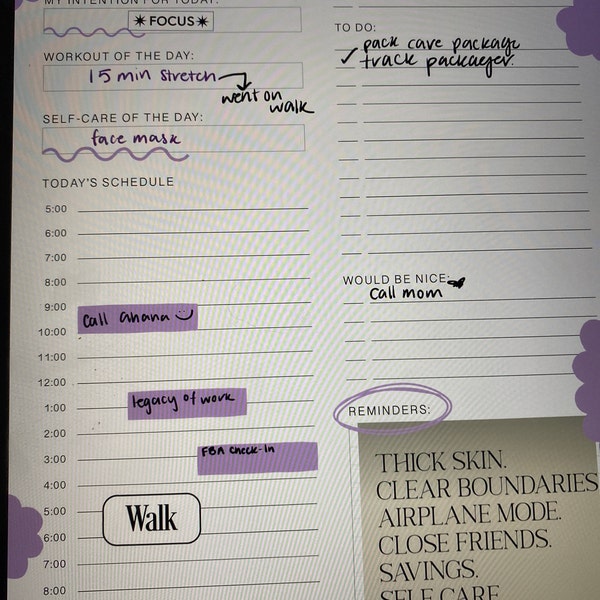 MY INTENTION FOR TODAY:
✴ FOCUS ✴
WORKOUT OF THE DAY:
15 min stretch
went on
walk
SELF-CARE OF THE DAY:
face mask
TODAY'S SCHEDULE
5:00
6:00
7:00
8:00
9:00
call ahana
10:00
11:00
12:00
1:00
legacy of work
2:00
3:00
FBA check-in
4:00
5:00
Walk
6:00
7:00
8:00
TO DO:
pack care package
✓ track packages
WOULD BE NICE:
call mom
REMINDERS:
THICK SKIN.
CLEAR BOUNDARIES
AIRPLANE MODE.
CLOSE FRIENDS.
SAVINGS.
SELF CARE